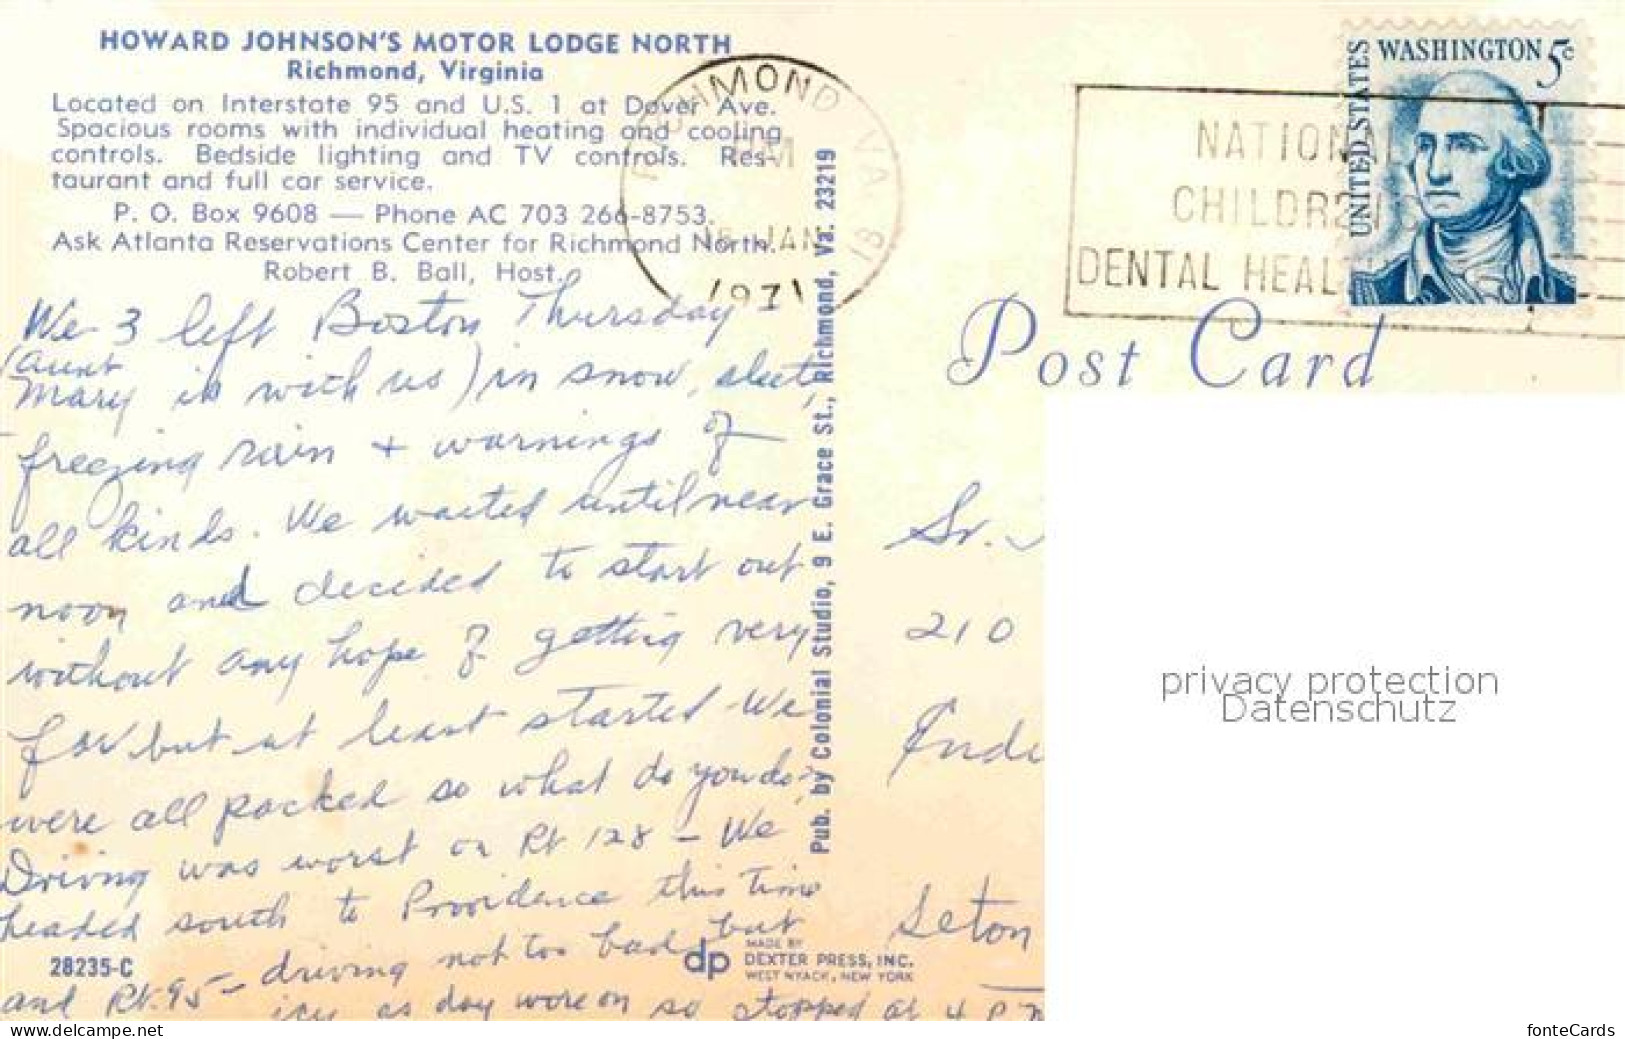 HOWARD JOHNSON'S MOTOR LODGE NORTH
Richmond, Virginia
Located on Interstate 95 and U.S. 1 at Dover Ave.
Spacious rooms with individual heating and cooling
controls. Bedside lighting and TV controls. Res-
taurant and full car service.
P. O. Box 9608 — Phone AC 703 266-8753.
Ask Atlanta Reservations Center for Richmond North.
Robert B. Ball, Host.
We 3 left Boston Thursday
(Aunt
Mary is with us) in snow, sleet,
freezing rain + warnings of
all kinds. We waited until near
noon and decided to start out
without any hope of getting very
far but at least started - We
were all packed so what do you do -
Driving was worst on Rt 128 - We
headed south to Providence this time
and Rt. 95 - driving not too bad but
icy as day wore on so stopped at 4 P.M
28235-C
dp
MADE BY
DEXTER PRESS, INC.
WEST NYACK, NEW YORK
Pub. by Colonial Studio, 9 E. Grace St., Richmond, Va. 23219
RICHMOND VA
PM
15 JAN
1971
NATIONAL
CHILDREN'S
DENTAL HEAL
UNITED STATES
WASHINGTON 5c
Post Card
Sr.
210
Indi
Seton
privacy protection
Datenschutz
www.ansichtskarten-center-onlineshop.de
fonteCards